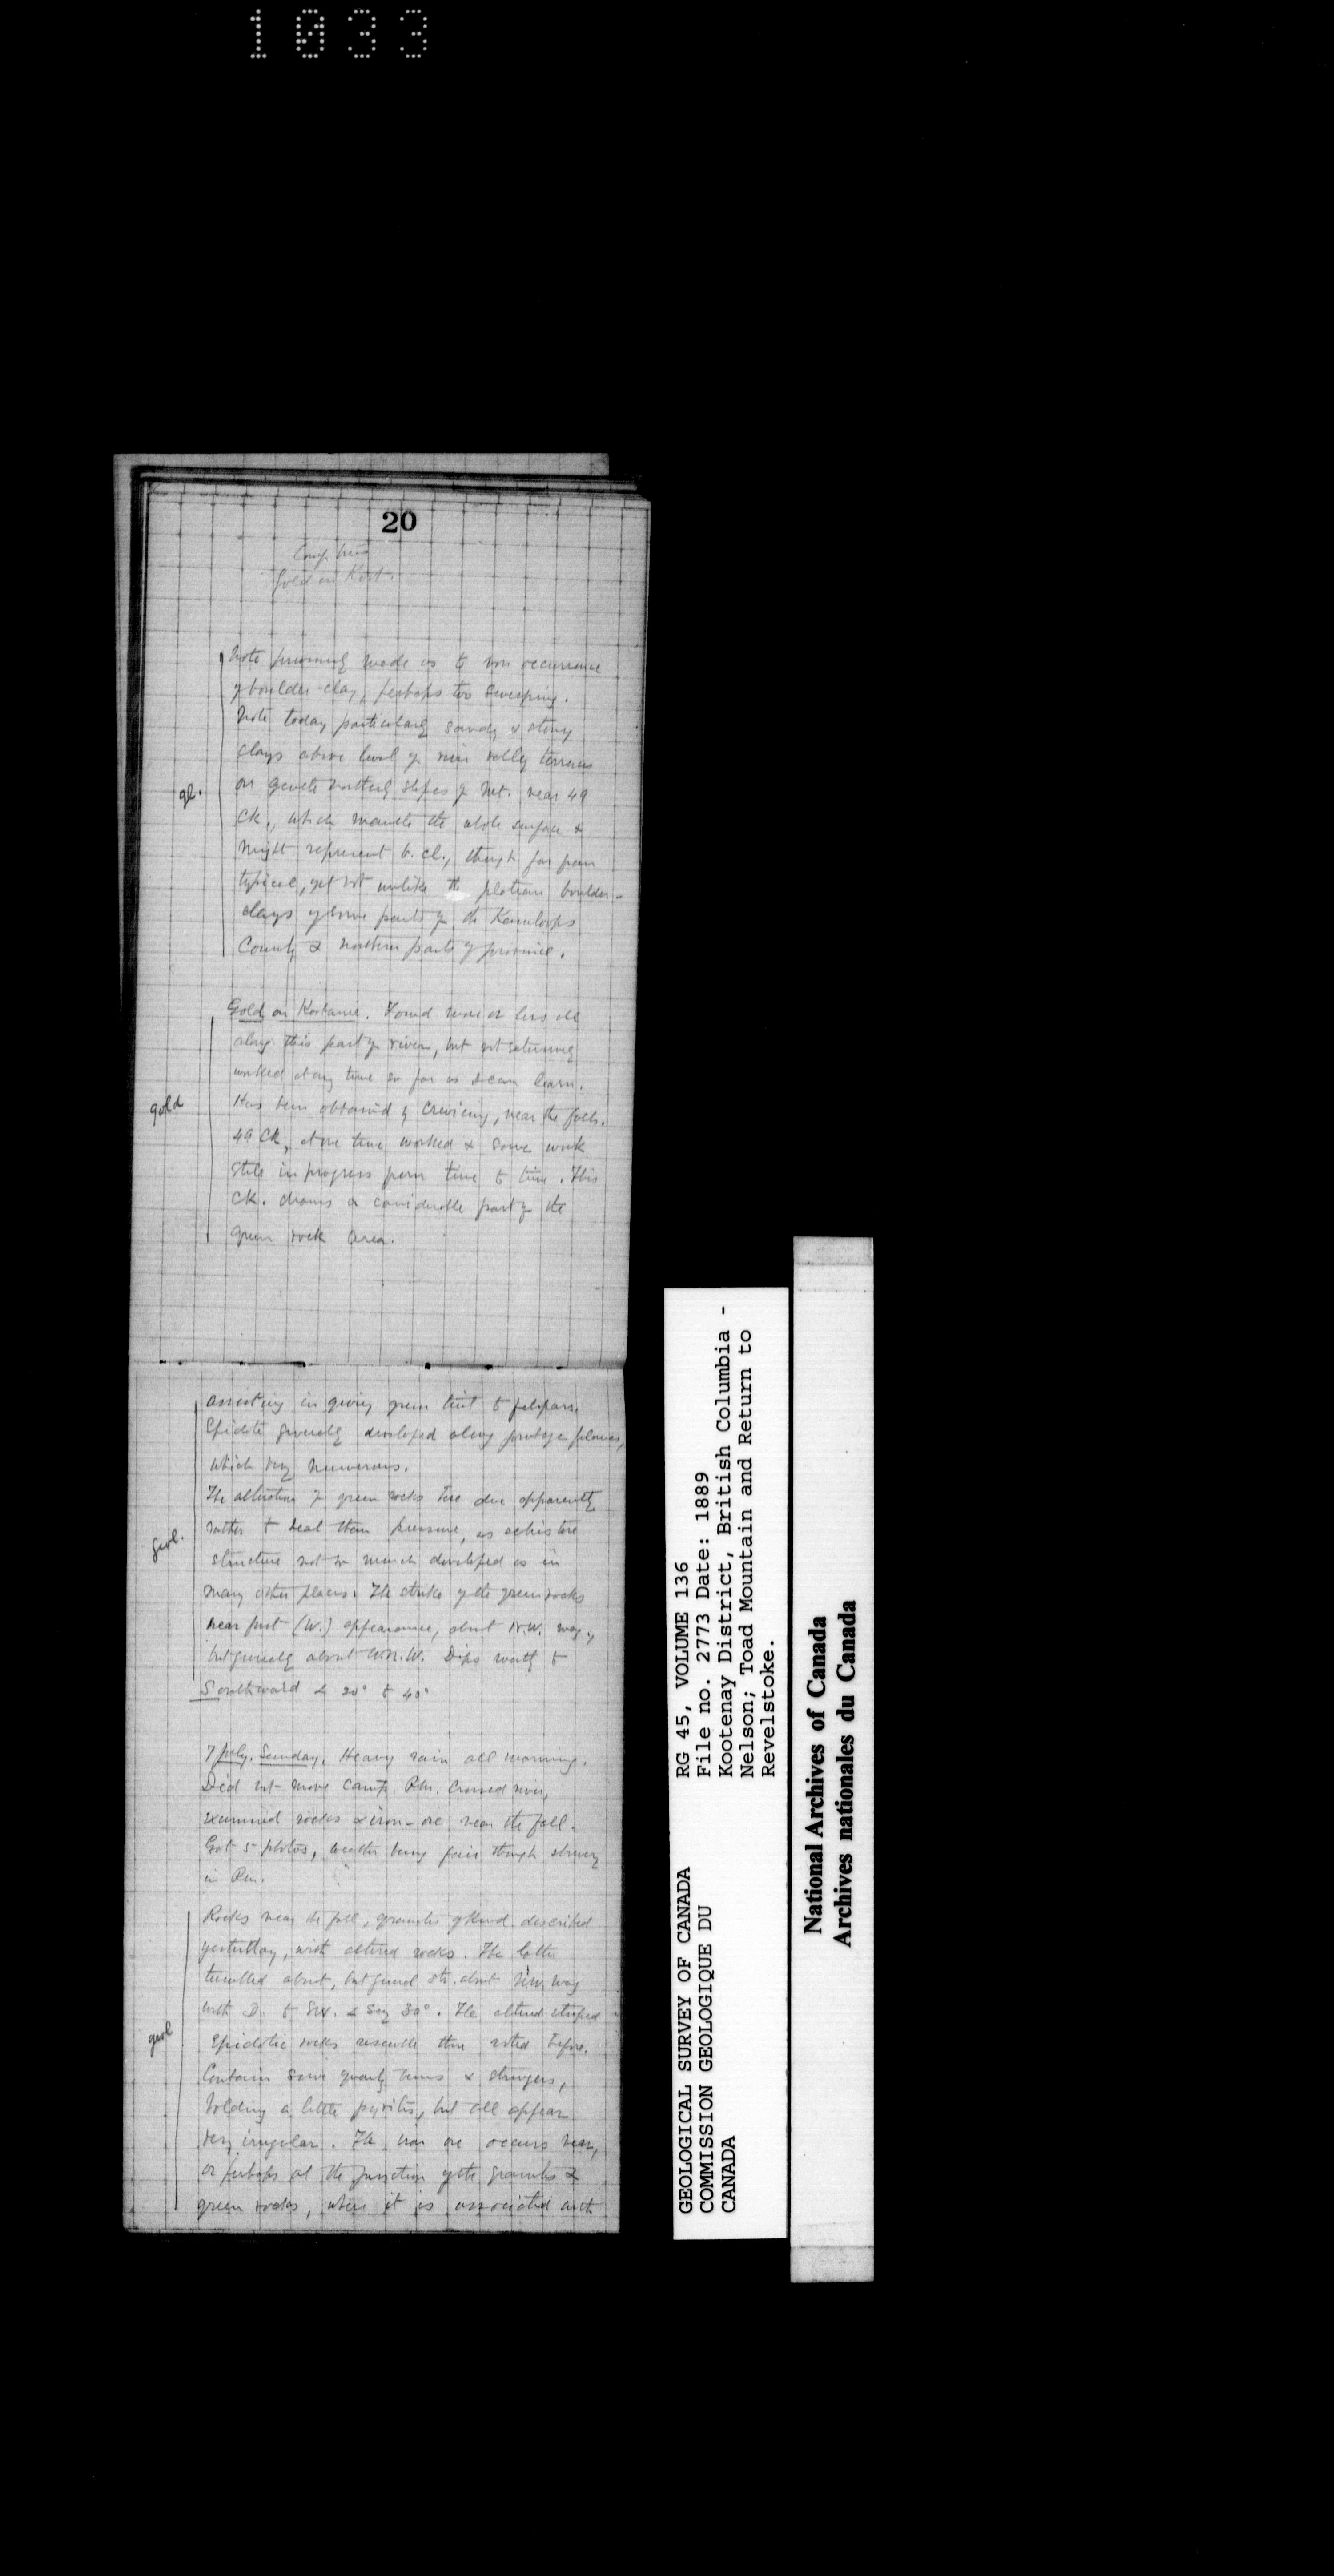 1033
20
Gold on Koot.
Note previously made as to non occurrence
of boulder-clay, perhaps too sweeping.
Note today particularly sandy & stony
clays above level of river valley terraces
on gentle northerly slopes of Mt. near 49
gl.
Ck., which mantle the whole surface &
might represent b. cl., though far from
typical, yet not unlike the plateau boulder-
clays of some parts of the Kamloops
Country & northern parts of province.
Gold on Kootanie. Found more or less all
along this part of river, but not extensively
worked at any time so far as I can learn.
gold
Has been obtained by crevicing, near the falls.
49 Ck, at one time worked & some work
still in progress from time to time. This
Ck. drains a considerable part of the
green rock area.
assisting in giving green tint to felspars.
Epidote generally developed along jointage planes,
which very numerous.
The alteration of green rocks here due apparently
rather to heat than pressure, as schistose
geol.
structure not so much developed as in
many other places. The strike of the green rocks
near first (W.) appearance, about N.W. mag.,
but generally about W.N.W. Dips mostly to
Southward < 20° to 40°
7 July. Sunday. Heavy rain all morning.
Did not move camp. P.m. Crossed river,
examined rocks & iron-ore near the fall.
Got 5 photos, weather being fair though showery
in P.m.
Rocks near the fall, granites of kind described
yesterday, with altered rocks. The latter
tumbled about, but general str. about N.W. mag
with D. to S.W. < say 30°. The altered striped
geol
Epidotic rocks resemble those noted before.
Contain some quartz veins & stringers,
holding a little pyrites, but all appear
very irregular. The iron ore occurs near,
or perhaps at the junction of the granites &
green rocks, where it is associated with
RG 45, VOLUME 136
File no. 2773 Date: 1889
Kootenay District, British Columbia -
Nelson; Toad Mountain and Return to
Revelstoke.
GEOLOGICAL SURVEY OF CANADA
COMMISSION GEOLOGIQUE DU
CANADA
National Archives of Canada
Archives nationales du Canada